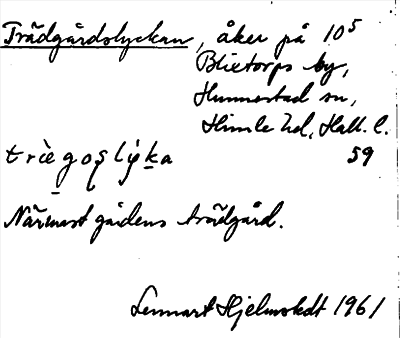 Trädgårdslyckan, åker på 10⁵
Blixtorps by,
Hunnestad sn,
Himle hd, Hall. l.
59
trɛ̀goʂlýka
Närmast gårdens trädgård.
Lennart Hjelmstedt 1961